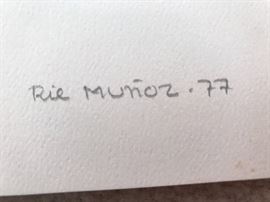 Rie Muñoz · 77